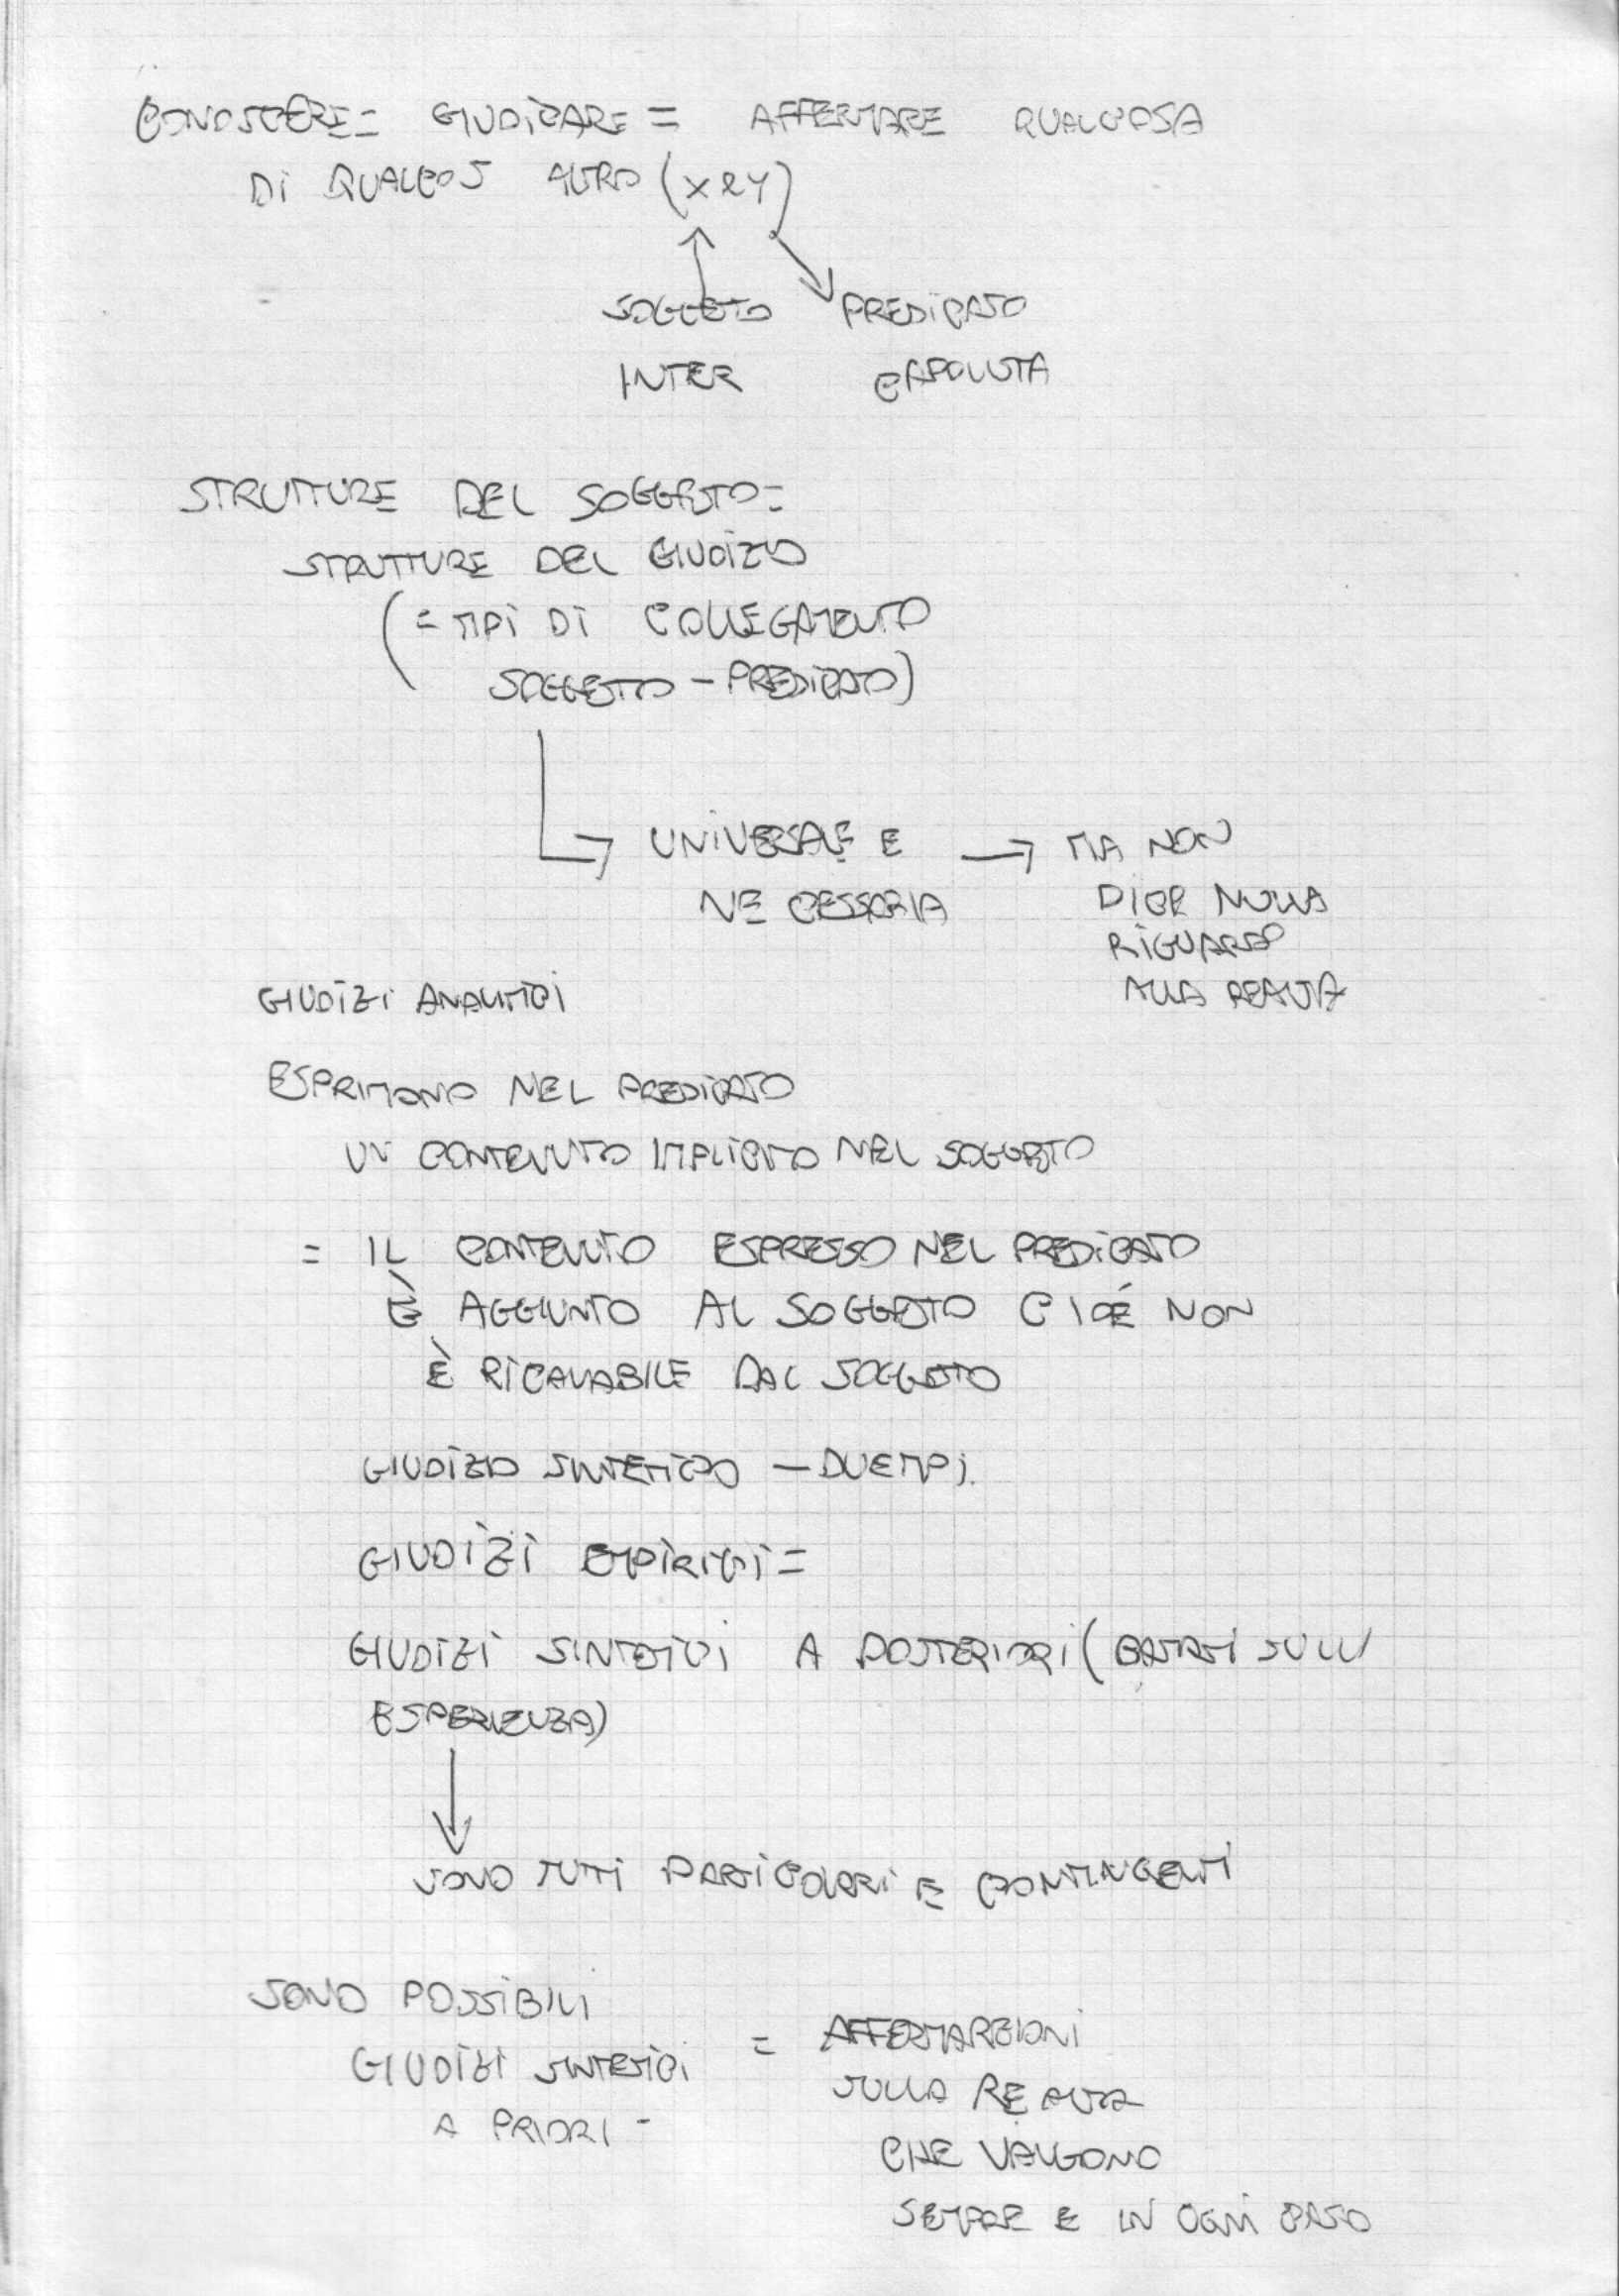 CONOSCERE = GIUDICARE = AFFERMARE QUALCOSA
DI QUALCOS ALTRO (X è Y)
SOGGETO PREDICATO
INTER
STRUTTURE DEL SOGGETTO =
STRUTTURE DEL GIUDIZIO
(= TIPI DI COLLEGAMENTO
SOGGETTO - PREDICATO)
UNIVERSALE E → MA NON
NECESSARIA DICE NULLA
RIGUARDO
ALLA REALTA
GIUDIZI ANALITICI
ESPRIMONO NEL PREDICATO
UN CONTENUTO IMPLICITO NEL SOGGETTO
= IL CONTENUTO ESPRESSO NEL PREDICATO
È AGGIUNTO AL SOGGETTO CIOÉ NON
È RICAVABILE DAL SOGGETTO
GIUDIZIO SINTETICO - DUE TIPI.
GIUDIZI EMPIRICI =
GIUDIZI SINTETICI A POSTERIORI (BASATI SULL
ESPERIENZA)
SONO TUTTI PARTICOLARI E CONTINGENTI
SONO POSSIBILI
GIUDIZI SINTETICI
A PRIORI -
= AFFERMAZIONI
SULLA REALTA
CHE VALGONO
SEMPRE E IN OGNI CASO